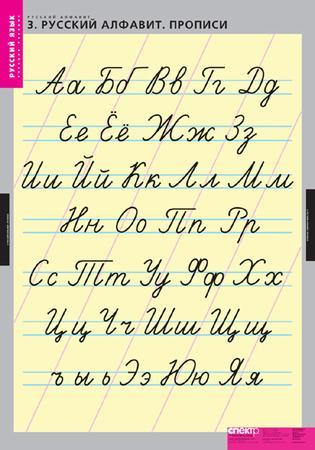 РУССКИЙ АЛФАВИТ
3. РУССКИЙ АЛФАВИТ. ПРОПИСИ
РУССКИЙ ЯЗЫК
Аа Бб Вв Гг Дд
Ее Ёё Жж Зз
Ии Йй Кк Лл Мм
Нн Оо Пп Рр
Сс Тт Уу Фф Хх
Цц Чч Шш Щщ
ъ ы ь Ээ Юю Яя
спектр